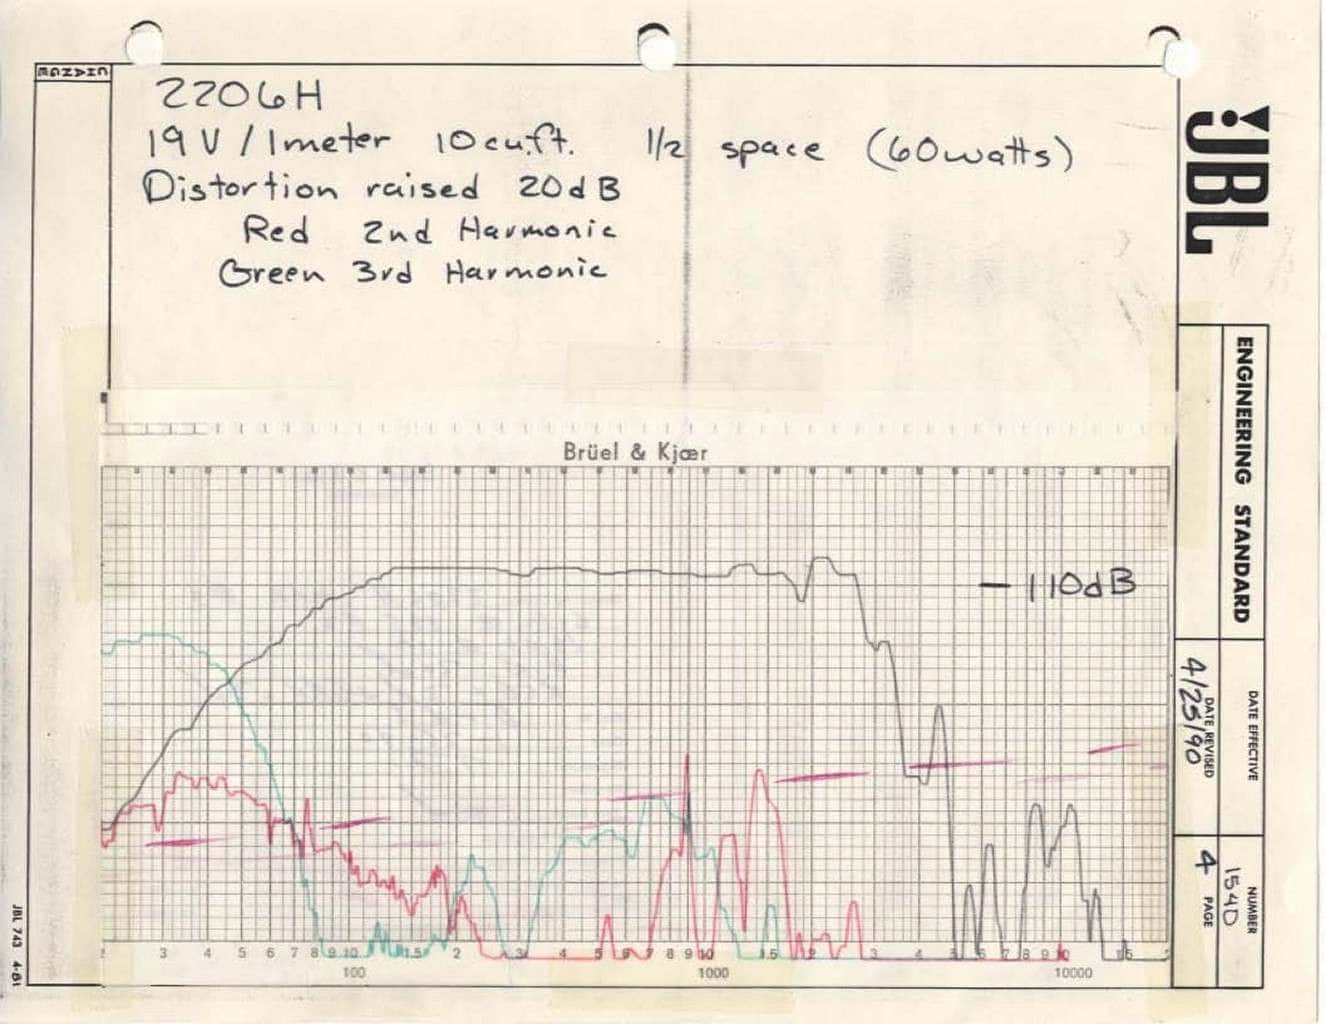 2206H
19V/1meter 10cu.ft. 1/2 space (60watts)
Distortion raised 20dB
Red 2nd Harmonic
Green 3rd Harmonic
Brüel & Kjær
- 110dB
2 3 4 5 6 7 8 9 10 1.5 2 3 4 5 6 7 8 9 10 1.5 2 3 4 5 6 7 8 9 10 15
100 1000 10000
JBL
ENGINEERING STANDARD
DATE EFFECTIVE
DATE REVISED
4/25/90
NUMBER
154D
PAGE
4
JBL 743 4-81